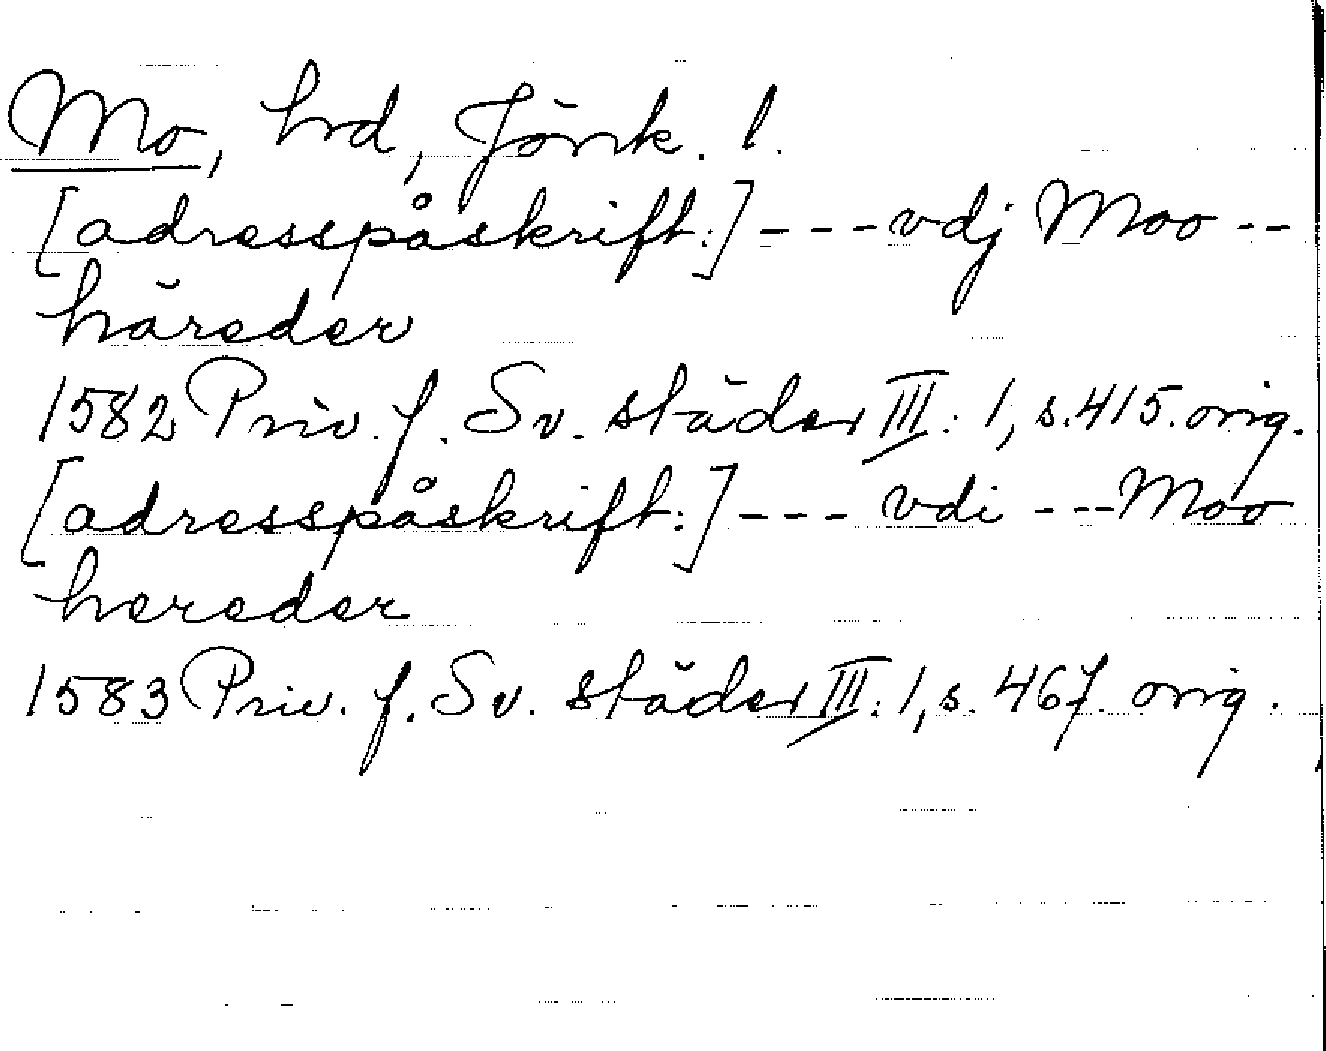 Mo, hrd, Jönk. l.
[adresspåskrift:] --- vdj Moo --
häreder
1582 Priv. f. Sv. städer III: 1, s. 415. orig.
[adresspåskrift:] --- vdi --- Moo
hereder
1583 Priv. f. Sv. städer III: 1, s. 467. orig.